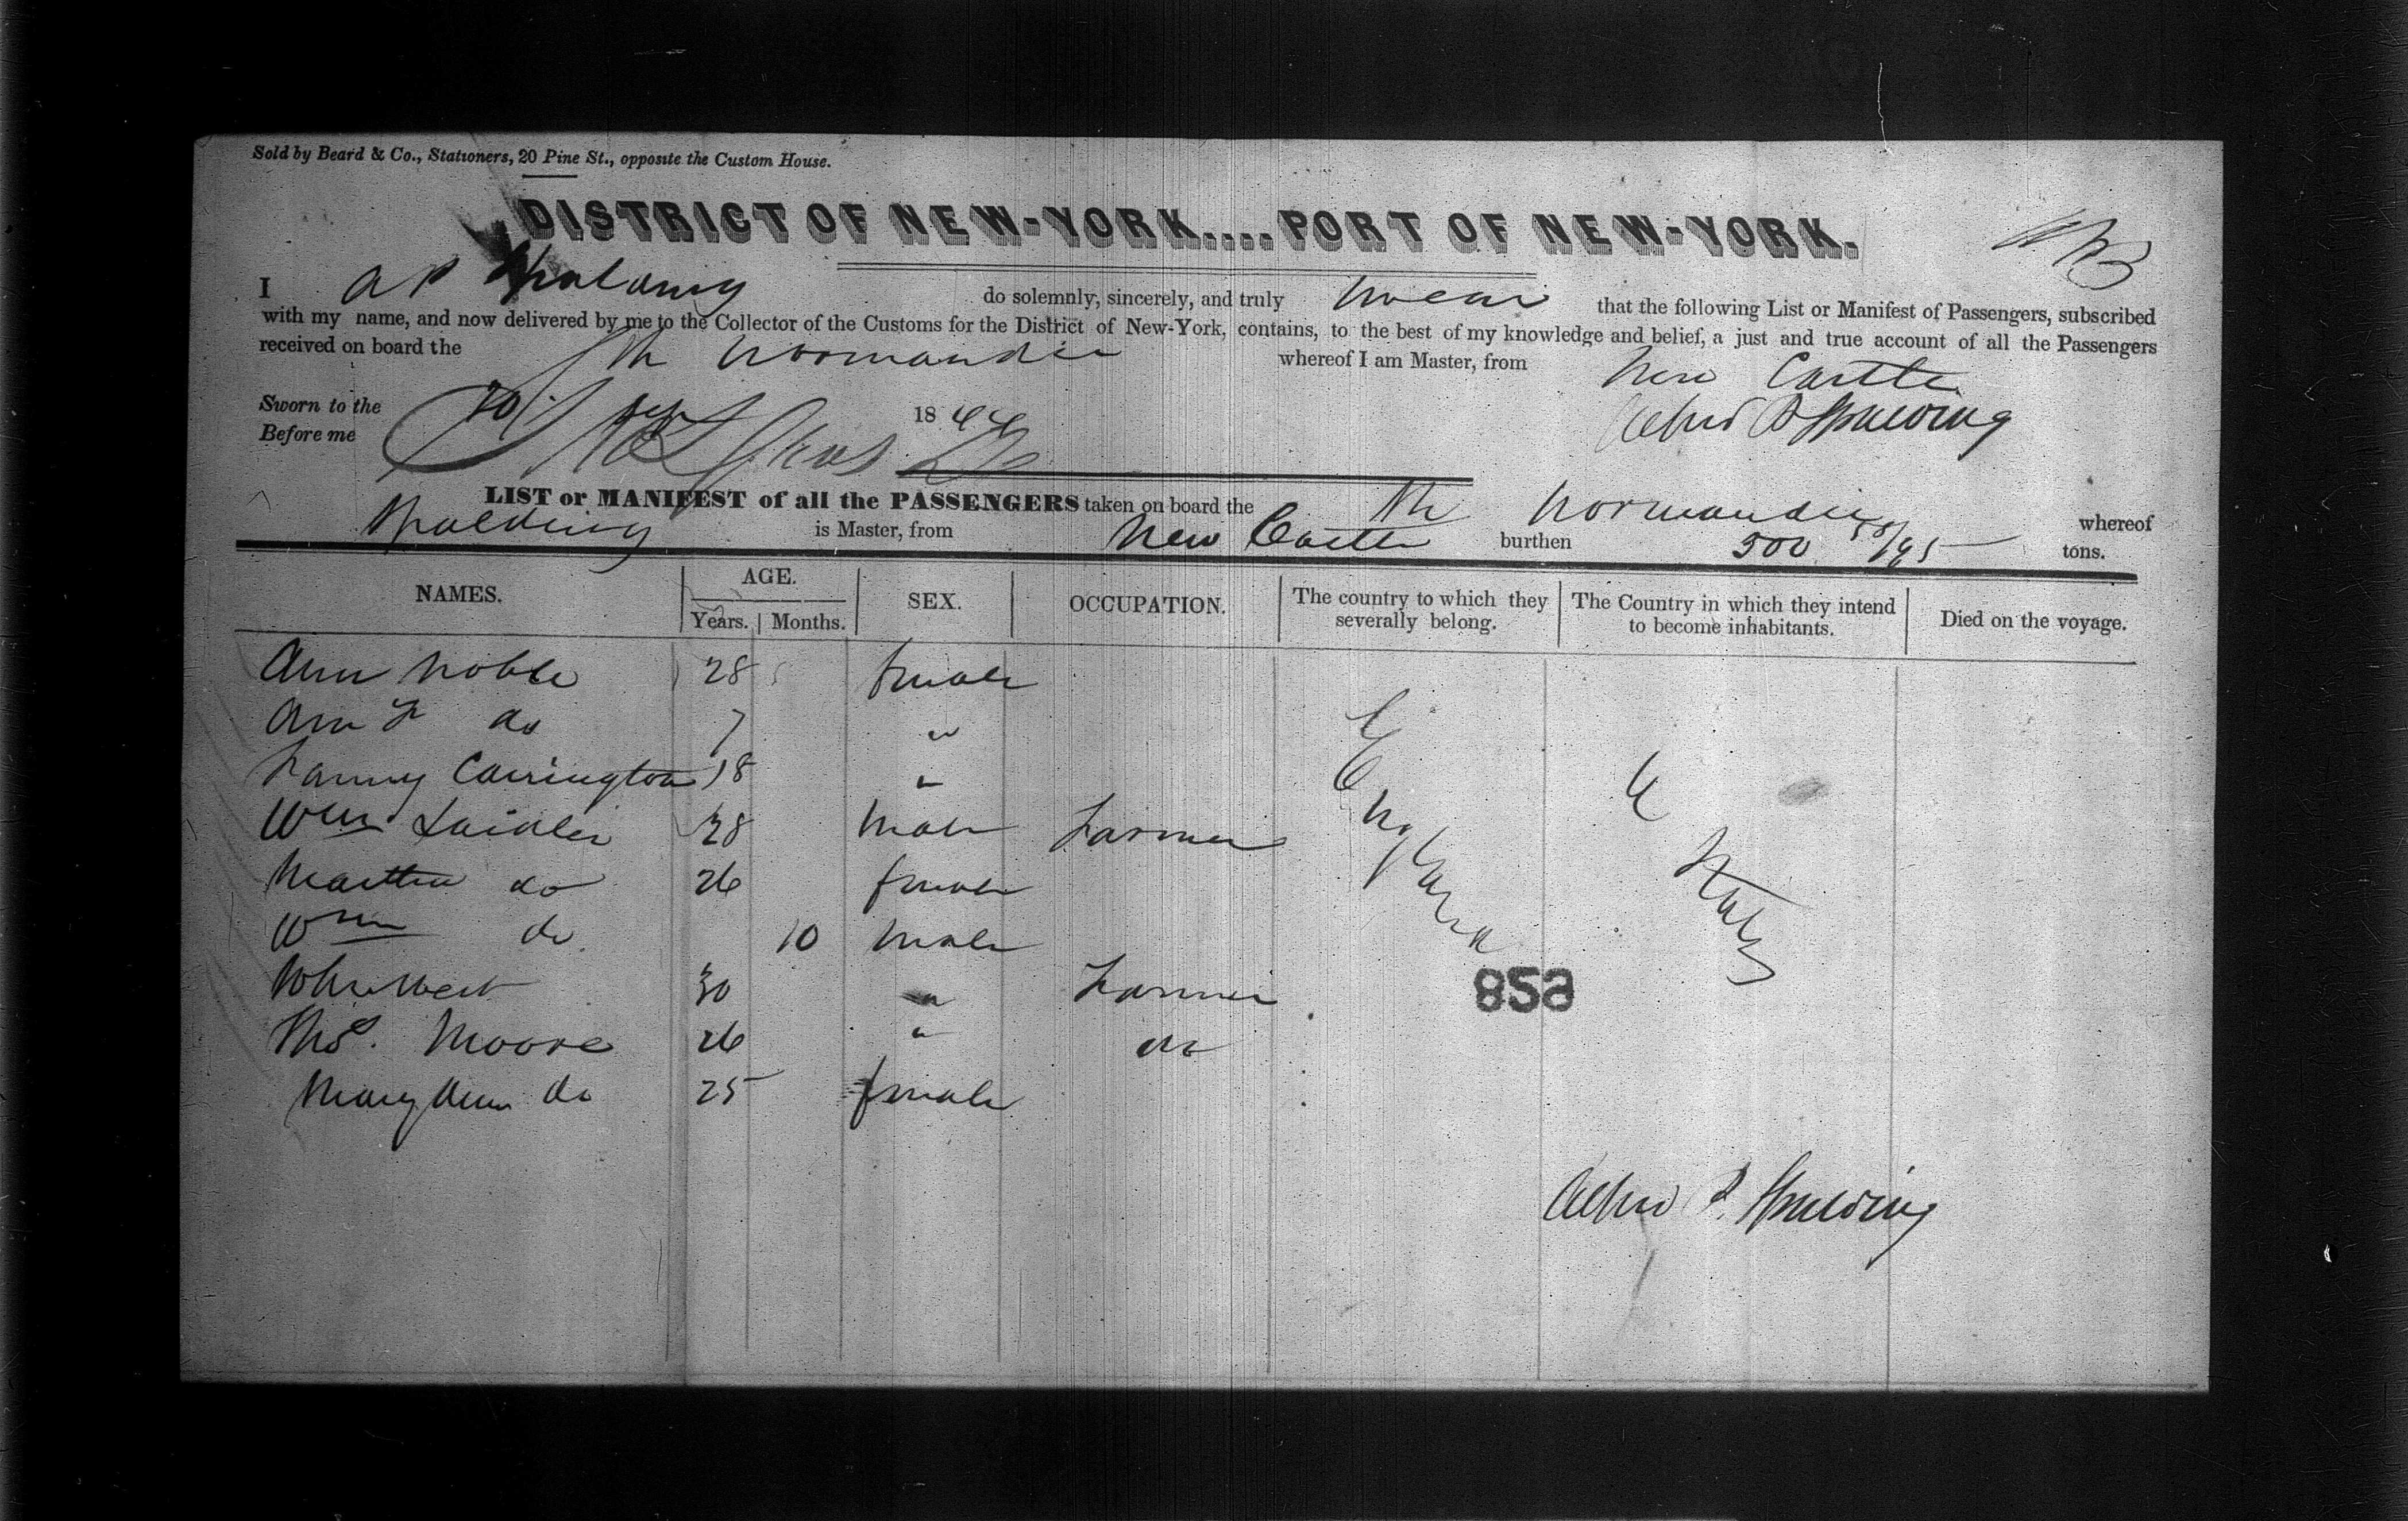 Sold by Beard & Co., Stationers, 20 Pine St., opposite the Custom House.
DISTRICT OF NEW-YORK....PORT OF NEW-YORK.
I A P Spalding do solemnly, sincerely, and truly swear that the following List or Manifest of Passengers, subscribed
with my name, and now delivered by me to the Collector of the Customs for the District of New-York, contains, to the best of my knowledge and belief, a just and true account of all the Passengers
received on board the Sh Normandie whereof I am Master, from New Castle
Sworn to the 1844
Before me
P Spalding
LIST or MANIFEST of all the PASSENGERS taken on board the Sh Normandie whereof
Spalding is Master, from New Castle burthen 500 /95 tons.
NAMES. AGE. SEX. OCCUPATION. The country to which they severally belong. The Country in which they intend to become inhabitants. Died on the voyage.
Years. Months.
Ann Noble 28 female
Ann F do 7 "
Fanny Carrington 18 "
Wm Laidler 28 Male Farmer
Martha do 26 female
Wm do 10 Male
West 30 " Farmer
Thos. Moore 26 " do
Mary Ann do 25 female
England
U States
859
P. Spalding